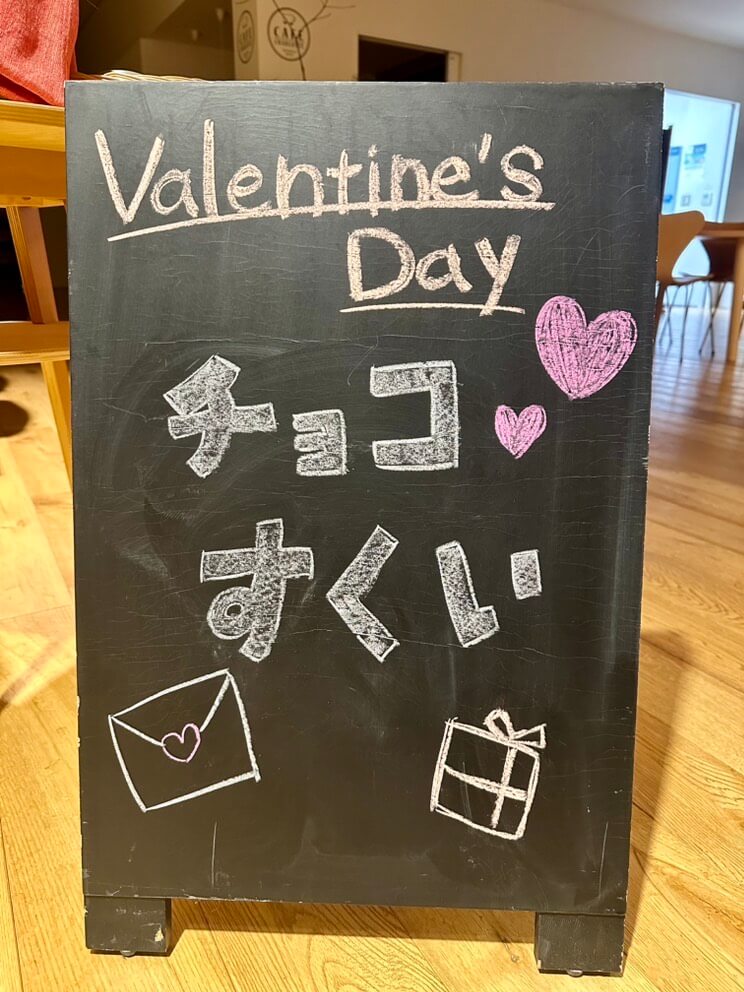 CAFE
Valentine's
Day
チョコ
すくい